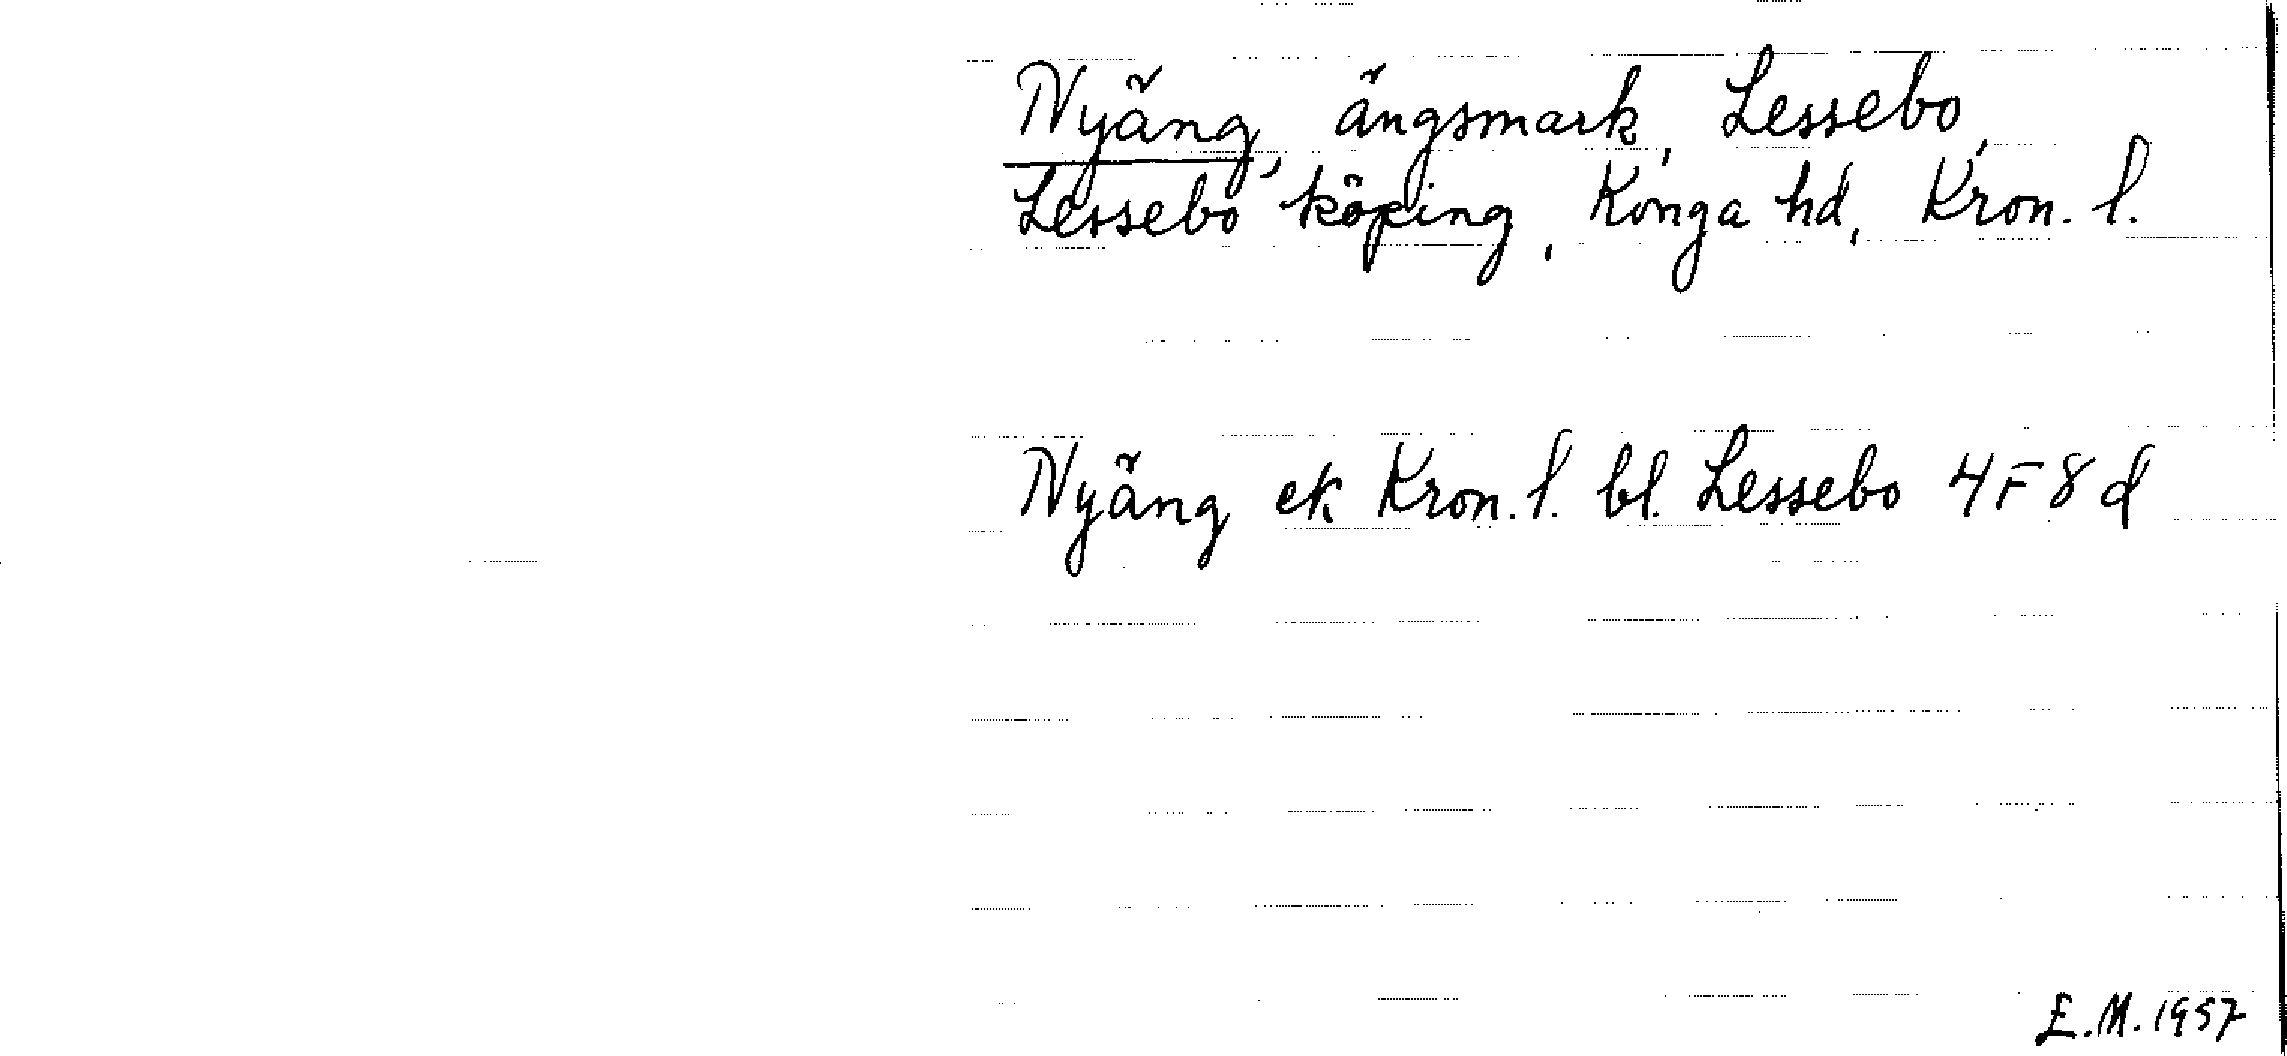 Nyäng, ängsmark, Lessebo,
Lessebo köping, Konga hd, Kron. l.
Nyäng ek Kron. l. bl. Lessebo 4F8d
E.M. 1957